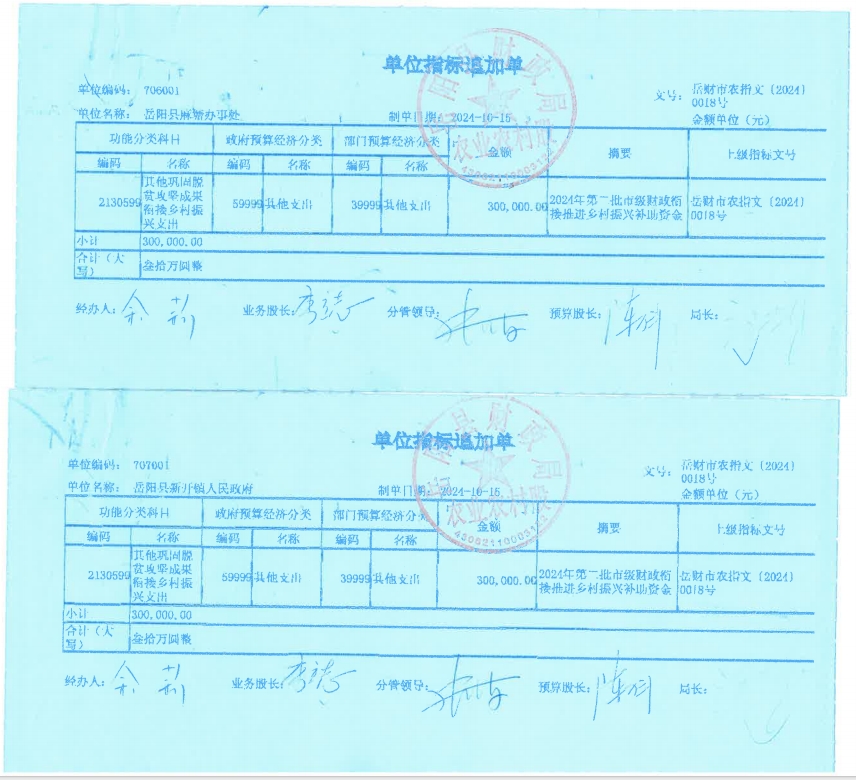 单位指标追加单
单位编码： 706001
文号： 岳财市农指文〔2024〕
0018号
单位名称： 岳阳县麻塘办事处
制单日期： 2024-10-15
金额单位（元）
功能分类科目 政府预算经济分类 部门预算经济分类 金额 摘要 上级指标文号
编码 名称 编码 名称 编码 名称
2130599 其他巩固脱贫攻坚成果衔接乡村振兴支出 59999 其他支出 39999 其他支出 300,000.00 2024年第二批市级财政衔接推进乡村振兴补助资金 岳财市农指文〔2024〕0018号
小计 300,000.00
合计（大写） 叁拾万圆整
经办人： 业务股长： 分管领导： 预算股长： 局长：
岳阳县财政局
农业农村股
单位指标追加单
单位编码： 707001
文号： 岳财市农指文〔2024〕
0018号
单位名称： 岳阳县新开镇人民政府
制单日期： 2024-10-15
金额单位（元）
功能分类科目 政府预算经济分类 部门预算经济分类 金额 摘要 上级指标文号
编码 名称 编码 名称 编码 名称
2130599 其他巩固脱贫攻坚成果衔接乡村振兴支出 59999 其他支出 39999 其他支出 300,000.00 2024年第二批市级财政衔接推进乡村振兴补助资金 岳财市农指文〔2024〕0018号
小计 300,000.00
合计（大写） 叁拾万圆整
经办人： 业务股长： 分管领导： 预算股长： 局长：
岳阳县财政局
农业农村股